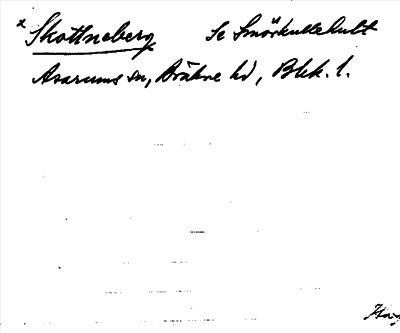 x Skottneberg Se Smörkullekult
Asarums sn, Bräkne hd, Blek. l.